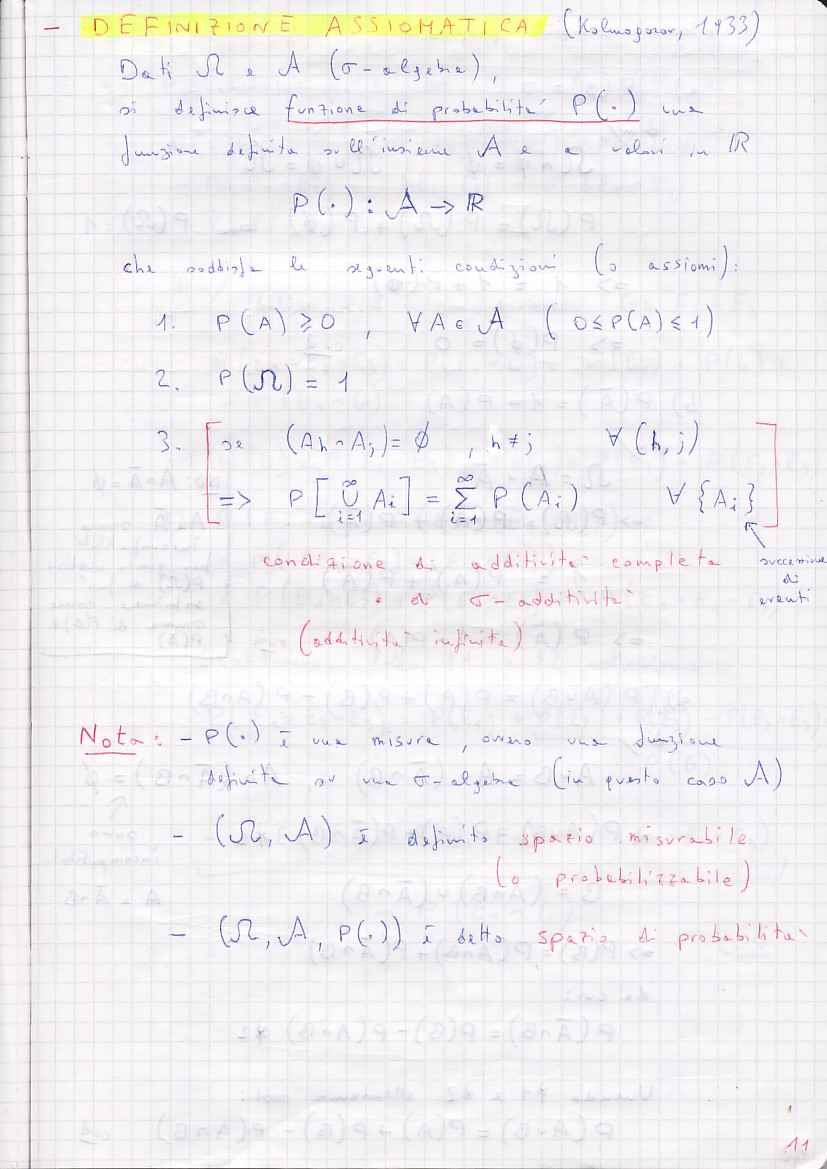 - DEFINIZIONE ASSIOMATICA (Kolmogorov, 1933)
Dati Ω e A (σ-algebra),
si definisce funzione di probabilità P(·) una
funzione definita sull'insieme A e a valori in ℝ
P(·): A → ℝ
che soddisfa le seguenti condizioni (o assiomi):
1. P(A) ⩾ 0 , ∀ A ∈ A ( 0 ≤ P(A) ≤ 1)
2. P(Ω) = 1
3. se (Ah ∩ Aj) = ∅ , h ≠ j ∀ (h, j)
=> P[⋃_{i=1}^{∞} Ai] = ∑_{i=1}^{∞} P(Ai) ∀ {Ai}
condizione di additività completa
o di σ-additività
(additività infinita)
successione
di
eventi
Nota: - P(·) è una misura, ovvero una funzione
definita su una σ-algebra (in questo caso A)
- (Ω, A) è definito spazio misurabile
(o probabilizzabile)
- (Ω, A, P(·)) è detto spazio di probabilità
11